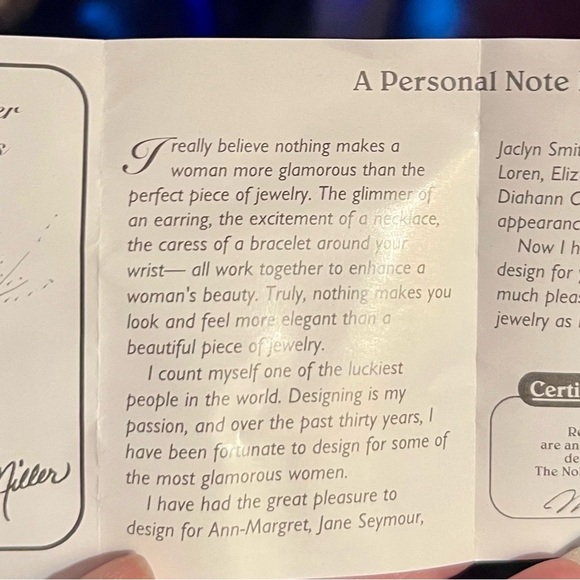 A Personal Note
I really believe nothing makes a
woman more glamorous than the
perfect piece of jewelry. The glimmer of
an earring, the excitement of a necklace,
the caress of a bracelet around your
wrist— all work together to enhance a
woman's beauty. Truly, nothing makes you
look and feel more elegant than a
beautiful piece of jewelry.
I count myself one of the luckiest
people in the world. Designing is my
passion, and over the past thirty years, I
have been fortunate to design for some of
the most glamorous women.
I have had the great pleasure to
design for Ann-Margret, Jane Seymour,
Jaclyn
Loren,
Diahann
Now I
design for
much
jewelry as
are an
The
Miller